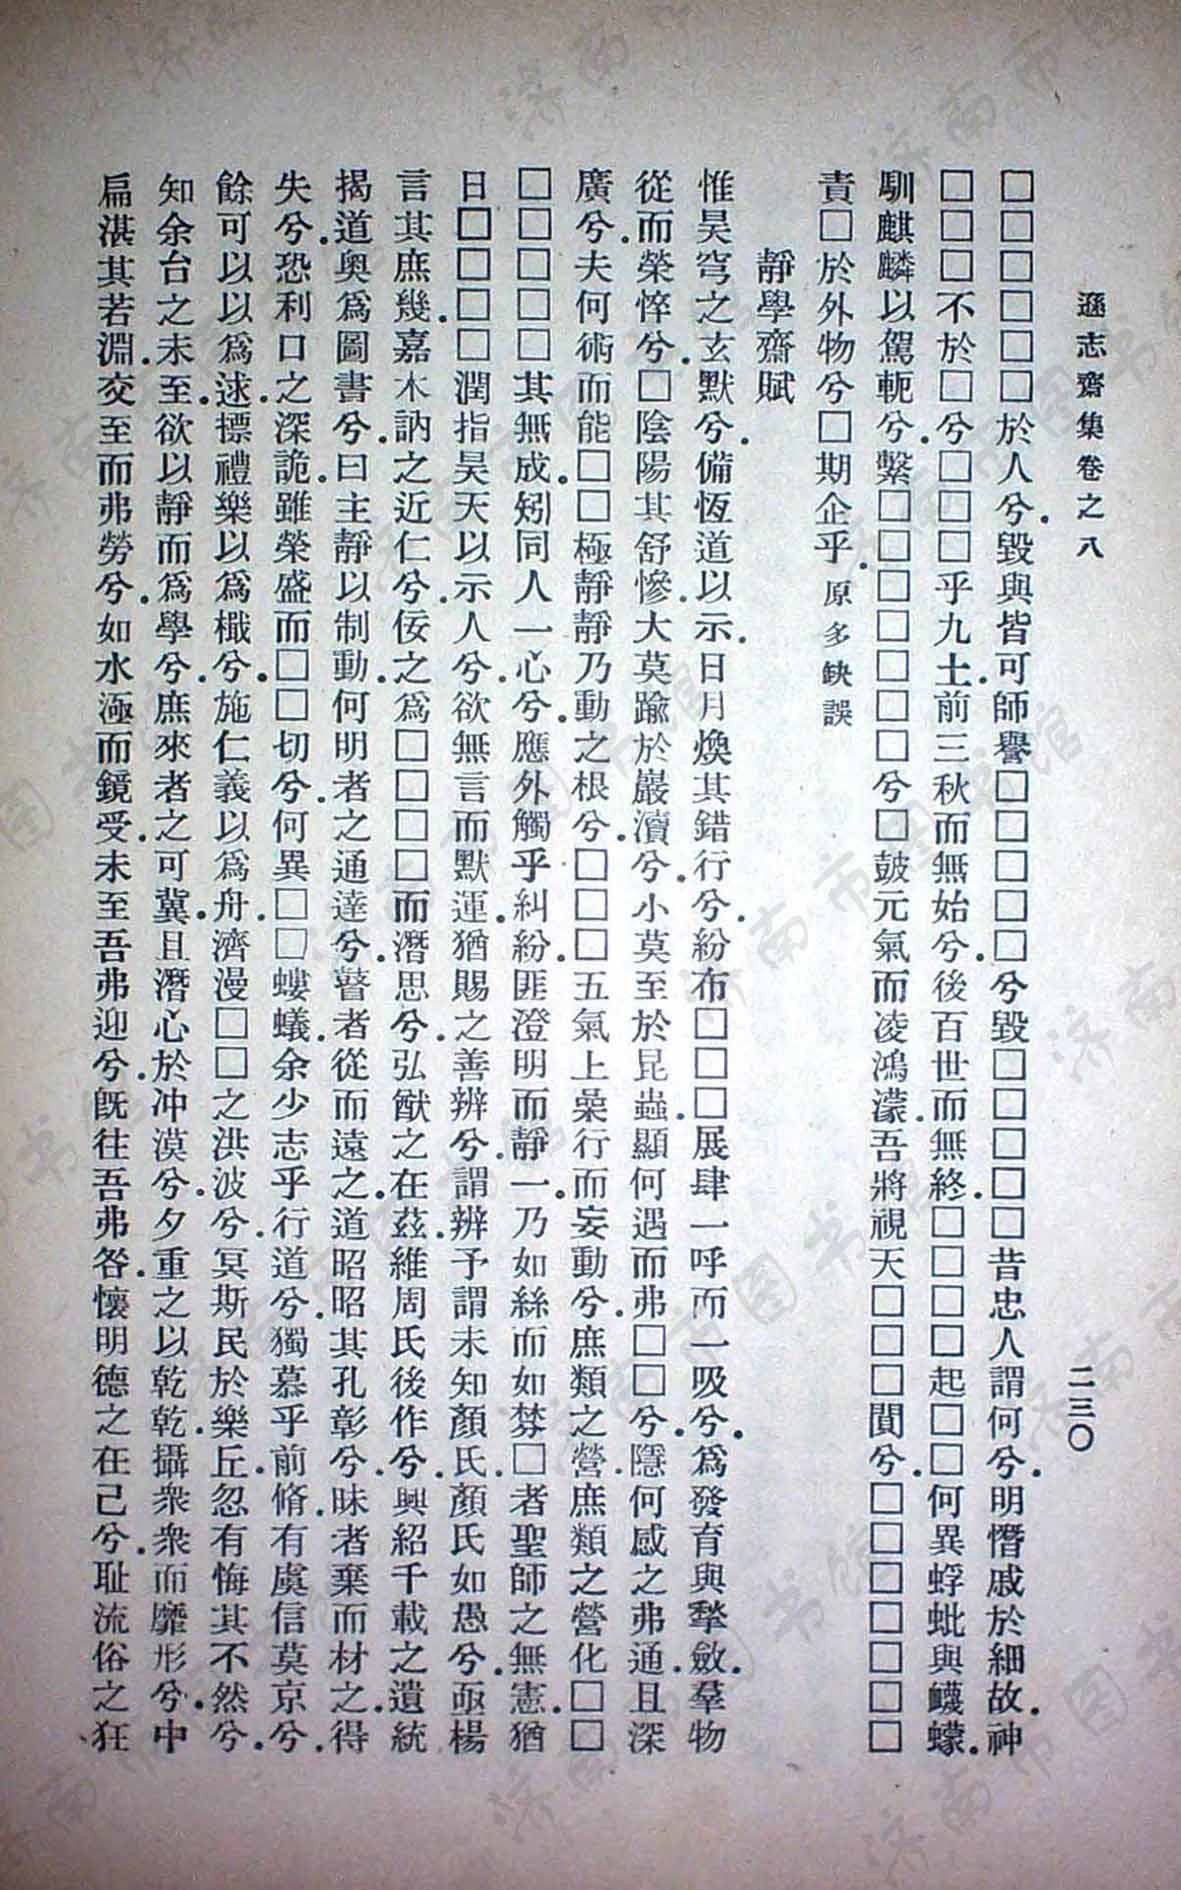 遜志齋集卷之八
二三〇
□□□□□□於人兮.毀與皆可師譽□□□□□兮毀□□□□□昔忠人謂何兮.明憯戚於細故.神
□□□不於□兮□□□乎九土.前三秋而無始兮.後百世而無終.□□□□起□□何異蜉蚍與蠛蠓.
馴麒麟以駕軛兮.繫□□□□□□□兮□鼓元氣而凌鴻濛.吾將視天□□□閒兮.□□□□□□□
責□於外物兮□期企乎.原多缺誤
靜學齋賦
惟昊穹之玄默兮.備恆道以示.日月煥其錯行兮.紛布□□□展肆一呼而一吸兮.爲發育與揫斂.羣物
從而榮悴兮.□陰陽其舒慘.大莫踰於巖瀆兮.小莫至於昆蟲.顯何遇而弗□□兮.隱何感之弗通.且深
廣兮.夫何術而能□□極靜靜乃動之根兮.□□□五氣上槀行而妄動兮.庶類之營.庶類之營化□□
□□□□□其無成.矧同人一心兮.應外觸乎糾紛.匪澄明而靜一.乃如絲而如棼.□者聖師之無憲.猶
日□□□□潤指昊天以示人兮.欲無言而默運.猶賜之善辨兮.謂辨予謂未知顏氏.顏氏如愚兮.亟楊
言其庶幾.嘉木訥之近仁兮.佞之爲□□□□而潛思兮.弘猷之在茲.維周氏後作兮.興紹千載之遺統
揭道奧爲圖書兮.曰主靜以制動.何明者之通達兮.瞽者從而遠之.道昭昭其孔彰兮.昧者棄而材之.得
失兮.恐利口之深詭.雖榮盛而□□切兮.何異□□螻蟻.余少志乎行道兮.獨慕乎前脩.有虞信莫京兮.
餘可以以爲逑.摽禮樂以爲檝兮.施仁義以爲舟.濟漫□□之洪波兮.冥斯民於樂丘.忽有悔其不然兮.
知余台之未至.欲以靜而爲學兮.庶來者之可冀.且潛心於冲漠兮.夕重之以乾乾.攝衆衆而靡形兮.中
扁湛其若淵.交至而弗勞兮.如水極而鏡受.未至吾弗迎兮.旣往吾弗咎.懷明德之在己兮.耻流俗之狂